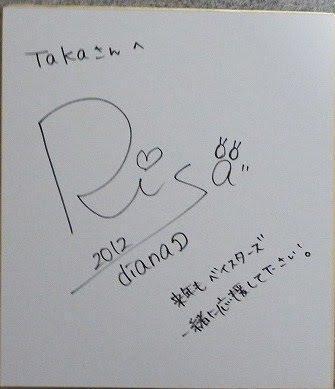 Takaさんへ
Risa
2012
dianaD
来年もベイスターズ
一緒に応援して下さい!